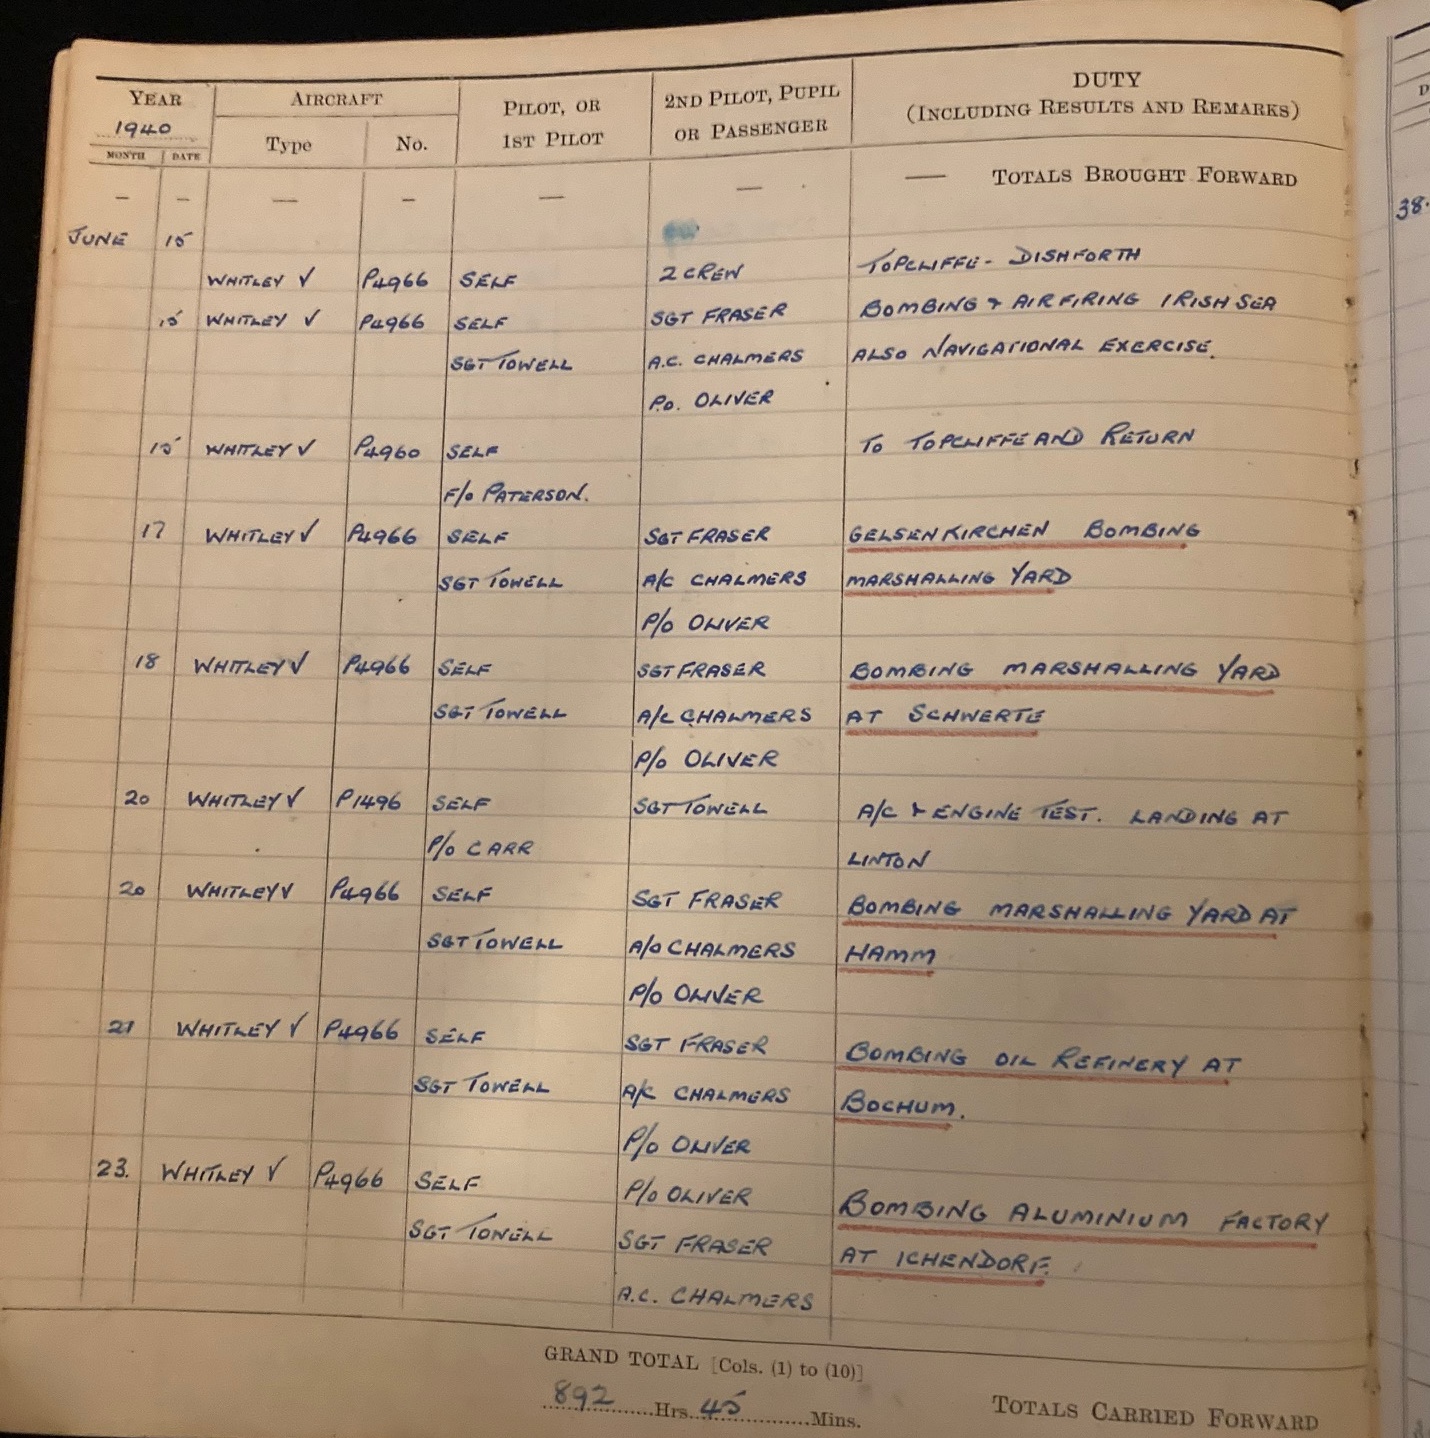 YEAR AIRCRAFT PILOT, OR 2ND PILOT, PUPIL DUTY
1940 Type No. 1ST PILOT OR PASSENGER (INCLUDING RESULTS AND REMARKS)
MONTH DATE
— — — — — — — TOTALS BROUGHT FORWARD
38.
JUNE 15
WHITLEY V P4966 SELF 2 CREW TOPCLIFFE - DISHFORTH
15 WHITLEY V P4966 SELF SGT FRASER BOMBING & AIR FIRING IRISH SEA
SGT TOWELL A.C. CHALMERS ALSO NAVIGATIONAL EXERCISE.
P.O. OLIVER
15 WHITLEY V P4960 SELF TO TOPCLIFFE AND RETURN
F/O PATERSON.
17 WHITLEY V P4966 SELF SGT FRASER GELSENKIRCHEN BOMBING
SGT TOWELL A/C CHALMERS MARSHALLING YARD
P/O OLIVER
18 WHITLEY V P4966 SELF SGT FRASER BOMBING MARSHALLING YARD
SGT TOWELL A/C CHALMERS AT SCHWERTE
P/O OLIVER
20 WHITLEY V P1496 SELF SGT TOWELL A/C & ENGINE TEST. LANDING AT
P/O CARR LINTON
20 WHITLEY V P4966 SELF SGT FRASER BOMBING MARSHALLING YARD AT
SGT TOWELL A/C CHALMERS HAMM
P/O OLIVER
21 WHITLEY V P4966 SELF SGT FRASER BOMBING OIL REFINERY AT
SGT TOWELL A/C CHALMERS BOCHUM.
P/O OLIVER
23. WHITLEY V P4966 SELF P/O OLIVER BOMBING ALUMINIUM FACTORY
SGT TOWELL SGT FRASER AT ICHENDORF.
A.C. CHALMERS
GRAND TOTAL [Cols. (1) to (10)]
892 Hrs. 45 Mins. TOTALS CARRIED FORWARD